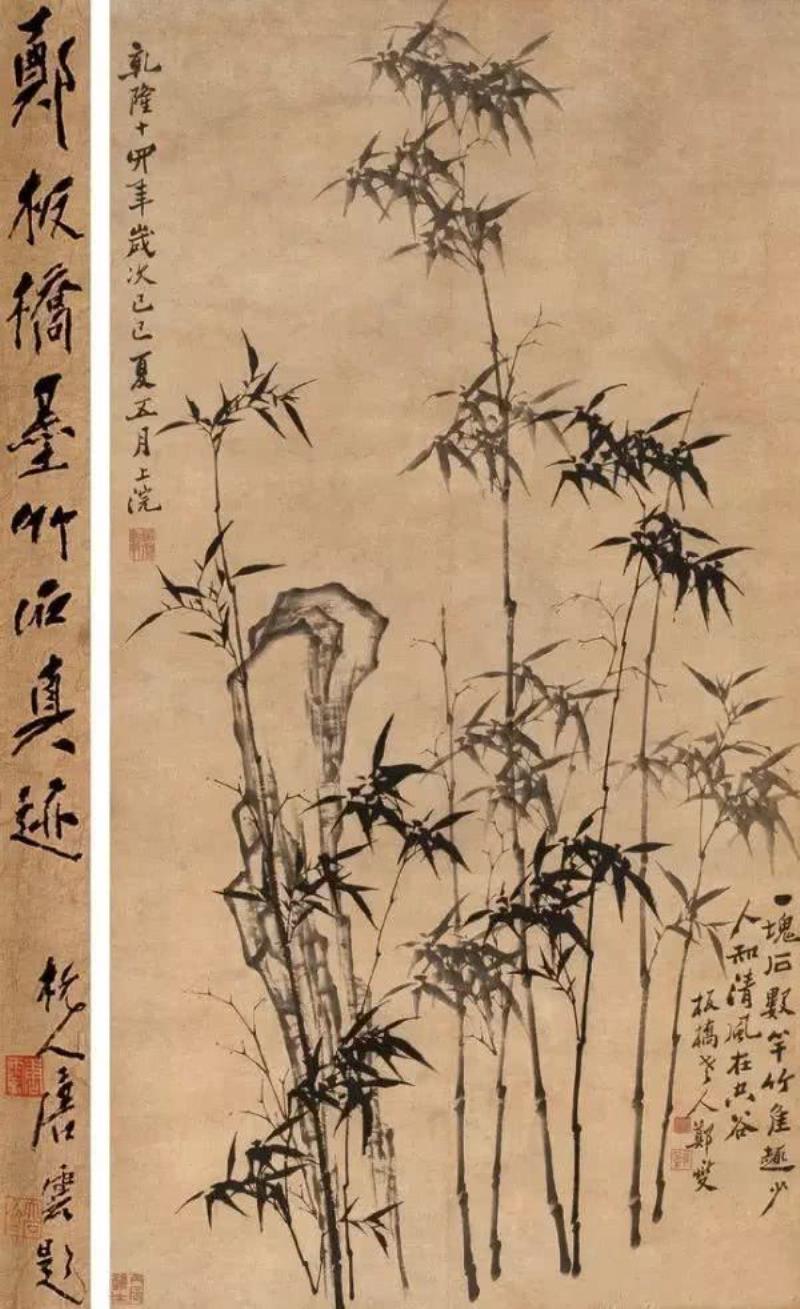 鄭板橋墨竹石真迹
杭人唐雲題
乾隆十四年歲次己巳夏五月上浣
一塊石數竿竹隹趣少
人知清風在空谷
板橋老人鄭燮